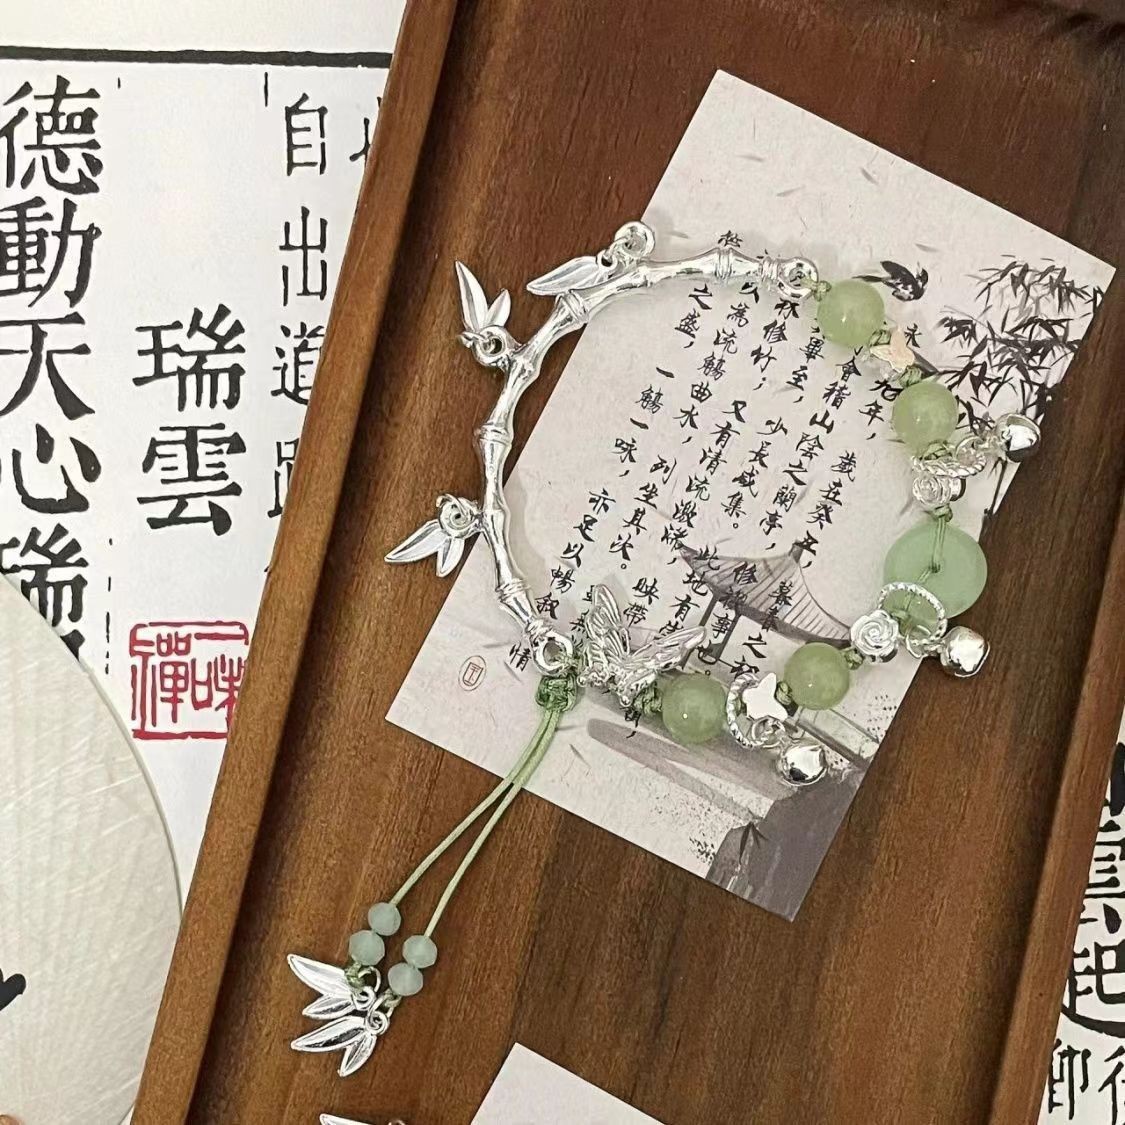 德動天心瑞
瑞雲
自出道
一味禪
永
九年，歲在癸丑，暮春之初
會稽山陰之蘭亭，修禊事也。
畢至，少長咸集。此地有崇
林修竹；又有清流激湍，映帶
以為流觴曲水，列坐其次。
之盛，一觴一詠，亦足以暢叙
情
起
仰